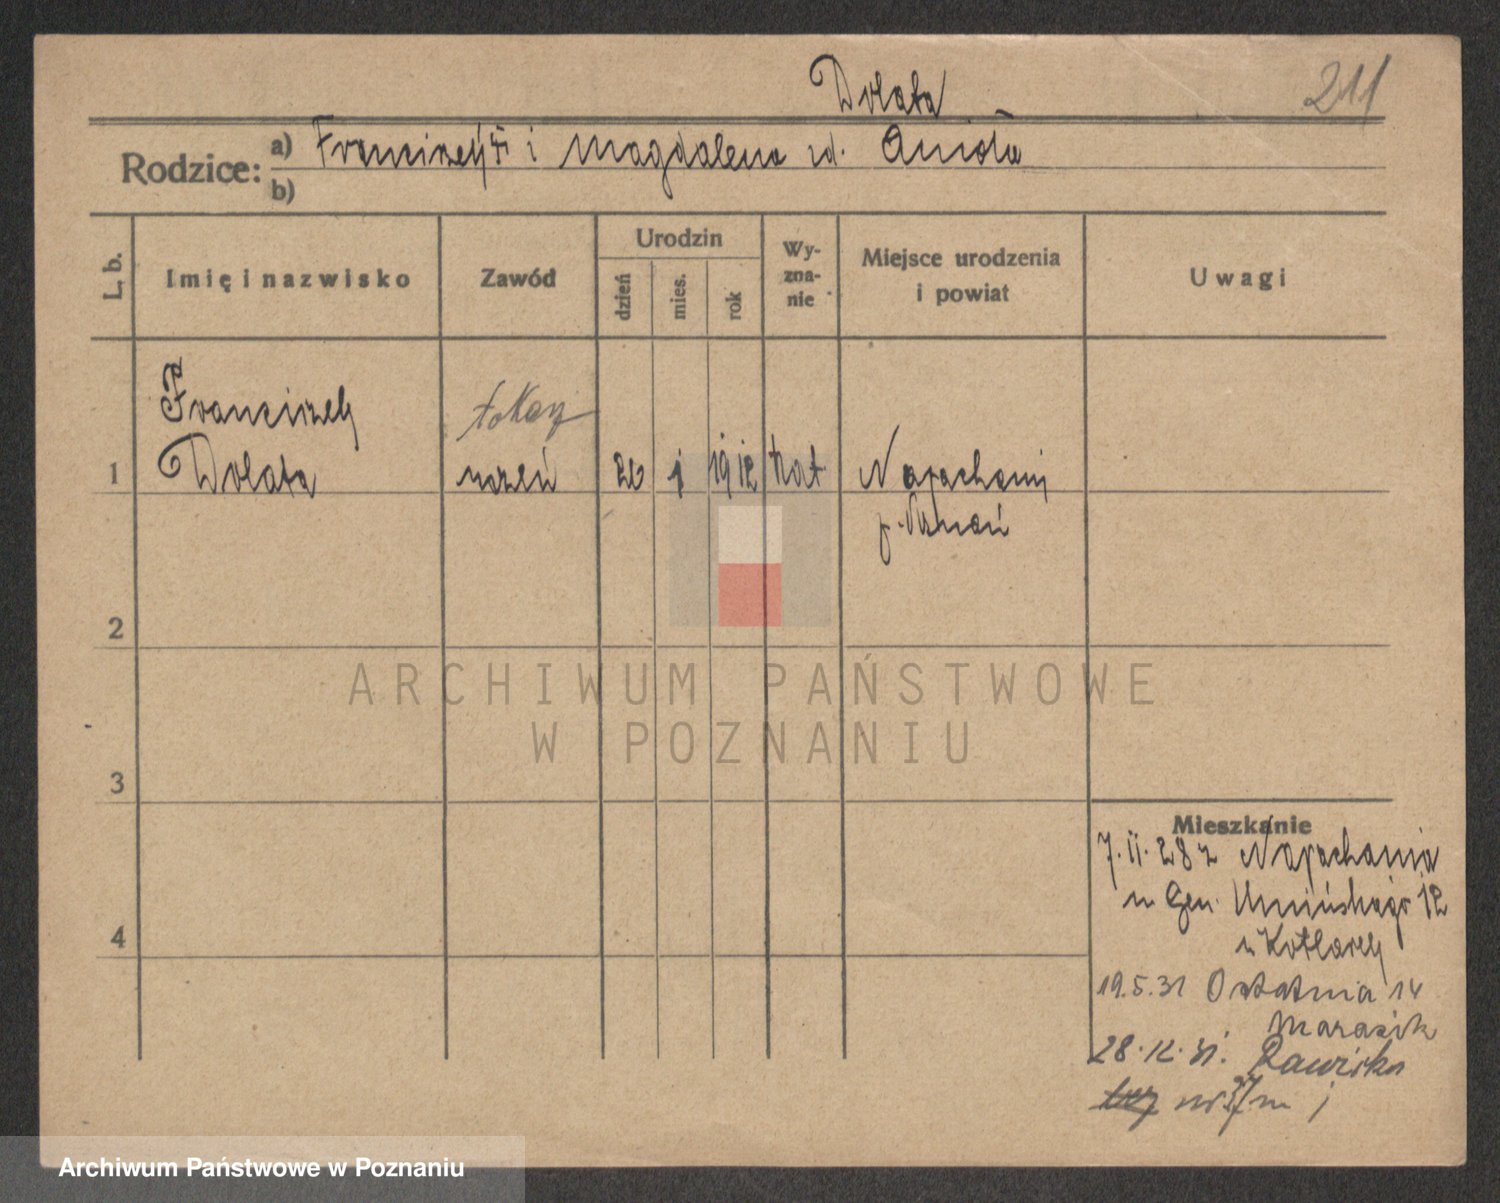 Dolata
211
Rodzice: a) Franciszek i Magdalena zd. Anioła
b)
L. b.
Imię i nazwisko
Zawód
Urodzin
dzień
mies.
rok
Wy-
zna-
nie
Miejsce urodzenia
i powiat
Uwagi
Franciszek
tokarz
1 Dolata uczeń 26 1 1912 kat Napachanij
p. Poznań
2
3
4
Mieszkanie
7.II.28 z Napachania
Gen. Umińskiego 12
u Kotlarek
19.5.31 Ostatnia 14
Marasik
28.12.31. Rawicka
nr 37 m
ARCHIWUM PAŃSTWOWE
W POZNANIU
Archiwum Państwowe w Poznaniu